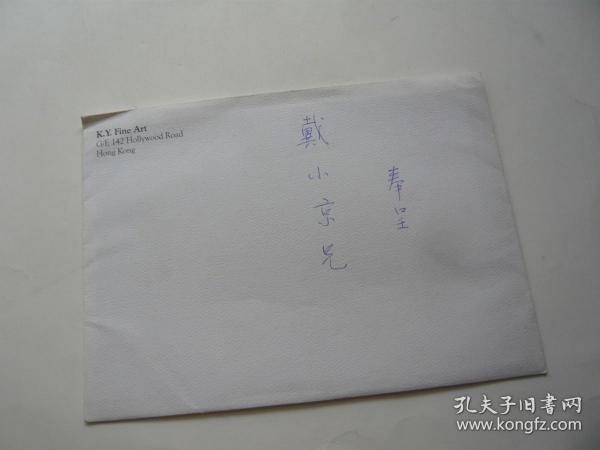 K.Y. Fine Art
G/F, 142 Hollywood Road
Hong Kong
奉呈
戴小京兄
孔夫子旧书网
www.kongfz.com